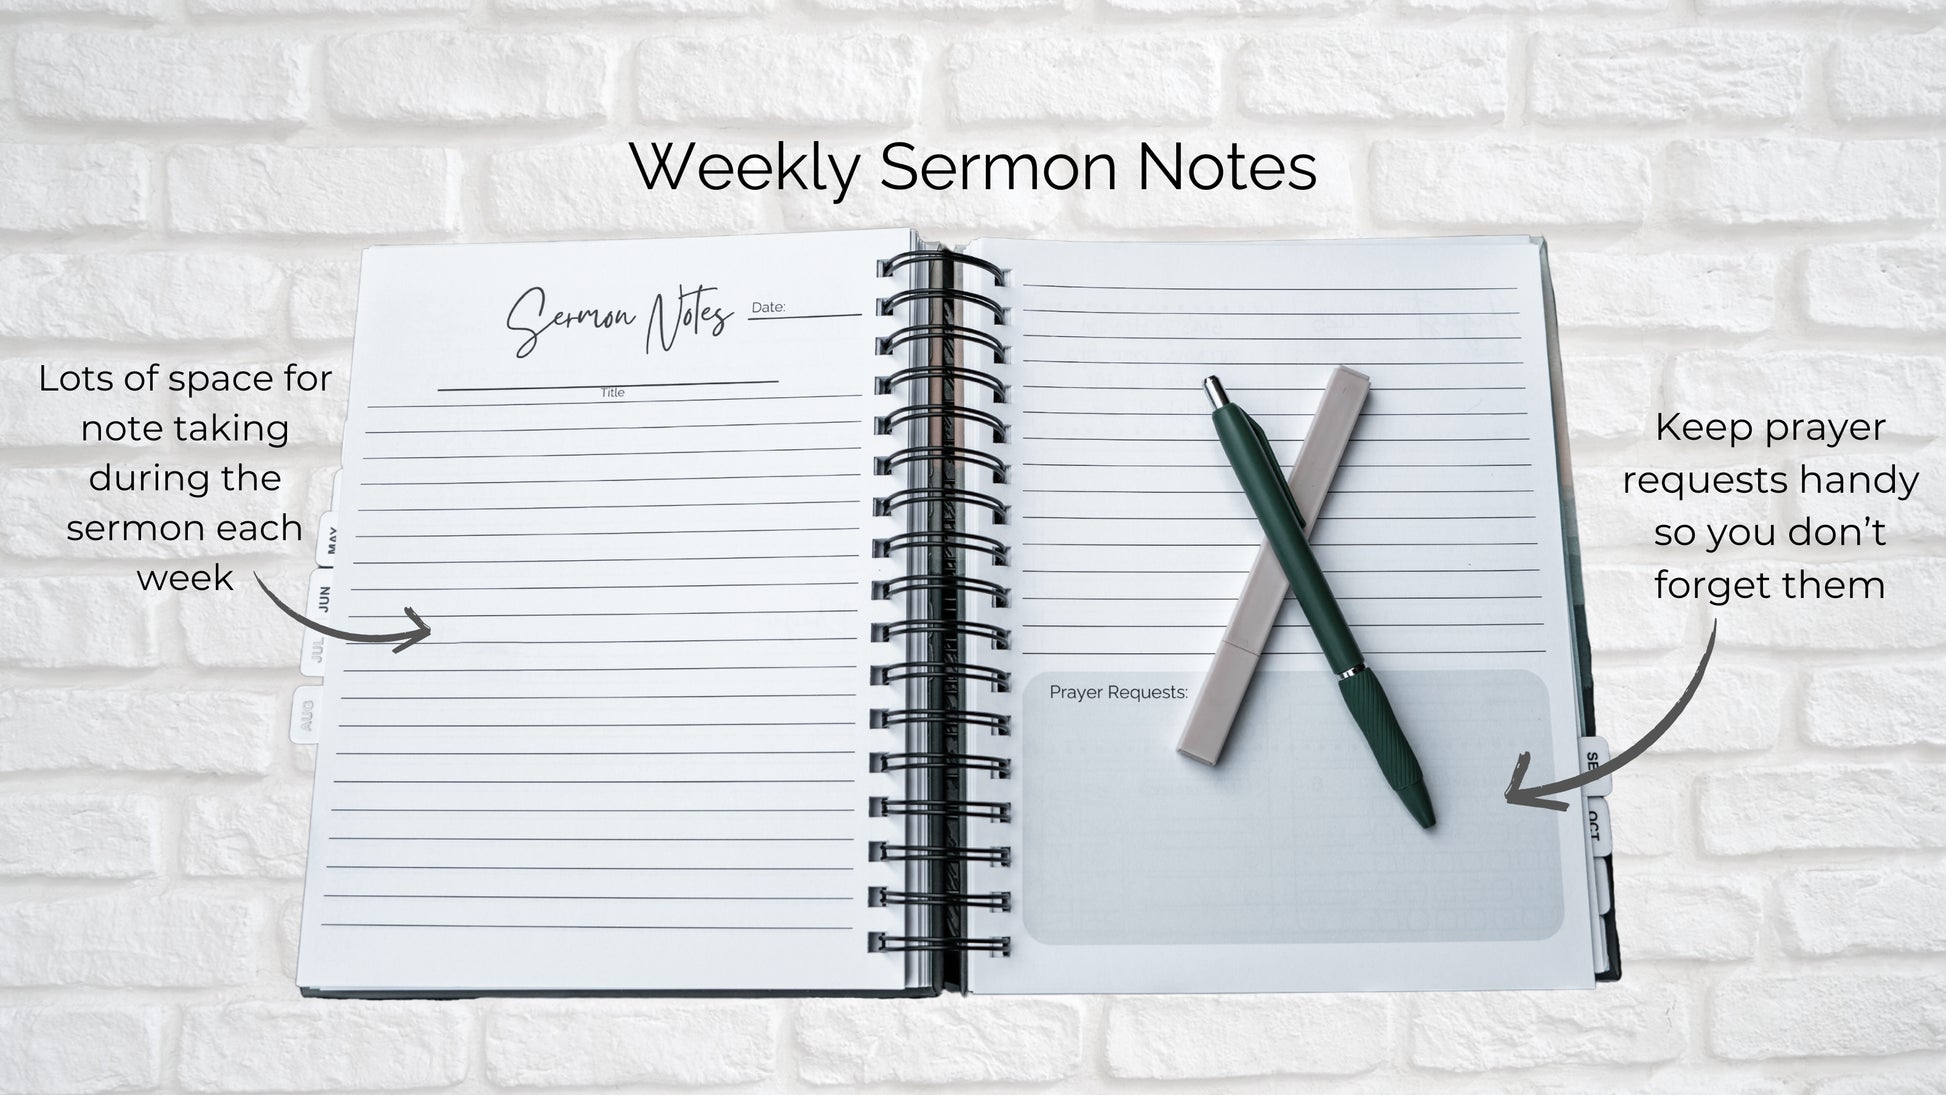 Weekly Sermon Notes
Sermon Notes
Date:
Title
Lots of space for
note taking
during the
sermon each
week
MAY
JUN
JUL
AUG
Keep prayer
requests handy
so you don't
forget them
Prayer Requests:
OCT